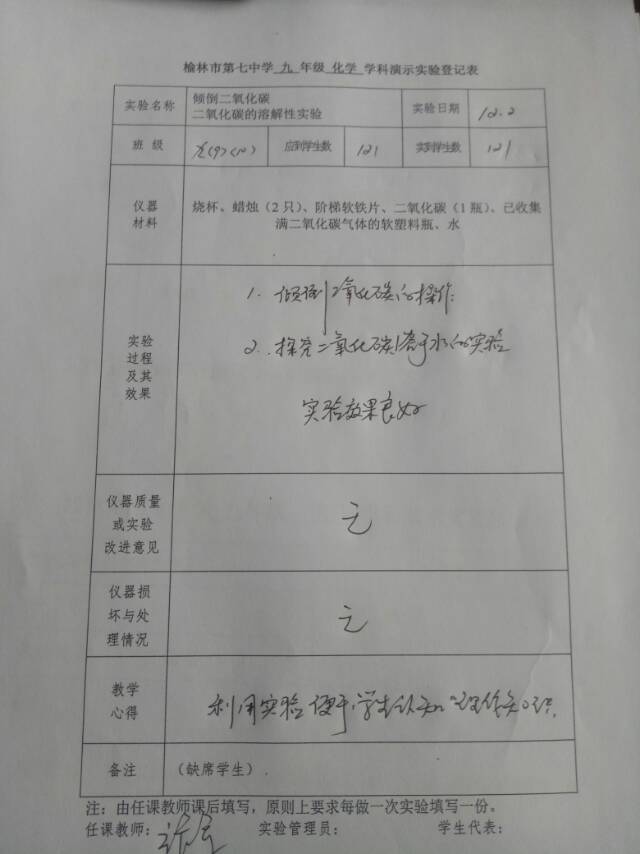 榆林市第七中学 九 年级 化学 学科演示实验登记表
实验名称 倾倒二氧化碳
二氧化碳的溶解性实验
实验日期 12.2
班 级 九(9)(10) 应到学生数 121 实到学生数 121
仪器
材料
烧杯、蜡烛（2只）、阶梯软铁片、二氧化碳（1瓶）、已收集
满二氧化碳气体的软塑料瓶、水
实验
过程
及其
效果
1. 倾倒二氧化碳的操作
2. 探究二氧化碳溶于水的实验
实验效果良好
仪器质量
或实验
改进意见
无
仪器损
坏与处
理情况
无
教学
心得
利用实验便于学生认知理解知识.
备注 （缺席学生）.
注：由任课教师课后填写，原则上要求每做一次实验填写一份。
任课教师： 实验管理员： 学生代表：